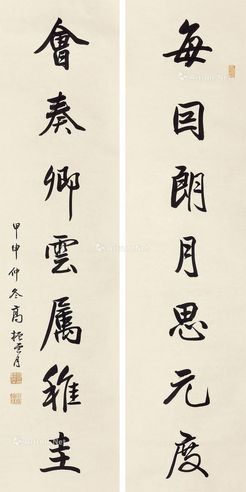 每因朗月思元度
會奏卿雲屬稚圭
甲申仲冬高振霄